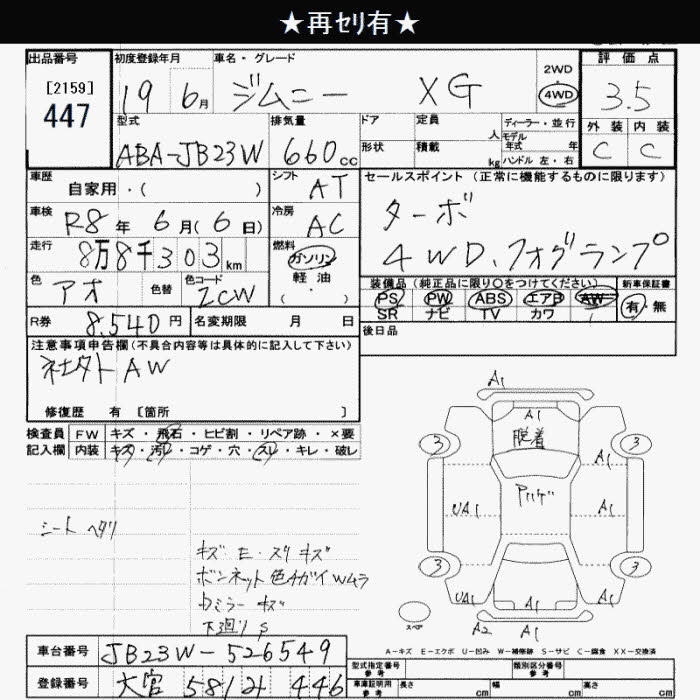 ★再ｾﾘ有★
出品番号
[2159]
447
初度登録年月
19 6月
車名・グレード
ジムニー XG
2WD
4WD
評価点
3.5
外装 内装
C C
型式
ABA-JB23W
排気量
660cc
ドア
形状
定員
人
積載
kg
ディーラー・並行
モデル
年式 年
ハンドル 左・右
車歴
自家用・( )
シフト
AT
セールスポイント (正常に機能するものに限ります)
ターボ
4WD.フォグランプ
車検
R8年 6月(6日)
冷房
AC
走行
8万8千303km
燃料
ガソリン
軽油
( . )
色
アオ
色替
色コード
ZCW
装備品(純正品に限り○をつけてください)
PS PW ABS エアB AW
SR ナビ TV カワ
新車保証書
有・無
R券
8.540円
名変期限 月 日
後日品
注意事項申告欄(不具合内容等は具体的に記入して下さい)
社外 AW
修復歴 有 [箇所 ]
検査員
記入欄
FW キズ・飛石・ヒビ割・リペア跡・×要
内装 キズ・汚レ・コゲ・穴・スレ・キレ・破レ
シート ヘタリ
キズ E・スリキズ
ボンネット色チガイWムラ
カミラーキズ
下廻りS
A1
A1
脱着
3 3
A1
UA1
A1
3 3
UA1
A1
A2 A1
スペア
A-キズ E-エクボ U-凹み W-補修跡 S-サビ C-腐食 XX-交換済
車台番号
JB23W-526549
登録番号
大宮 581 446
型式指定番号
参考
類別区分番号
参考
車庫証明用
参考
長さ cm 幅 cm 高さ cm